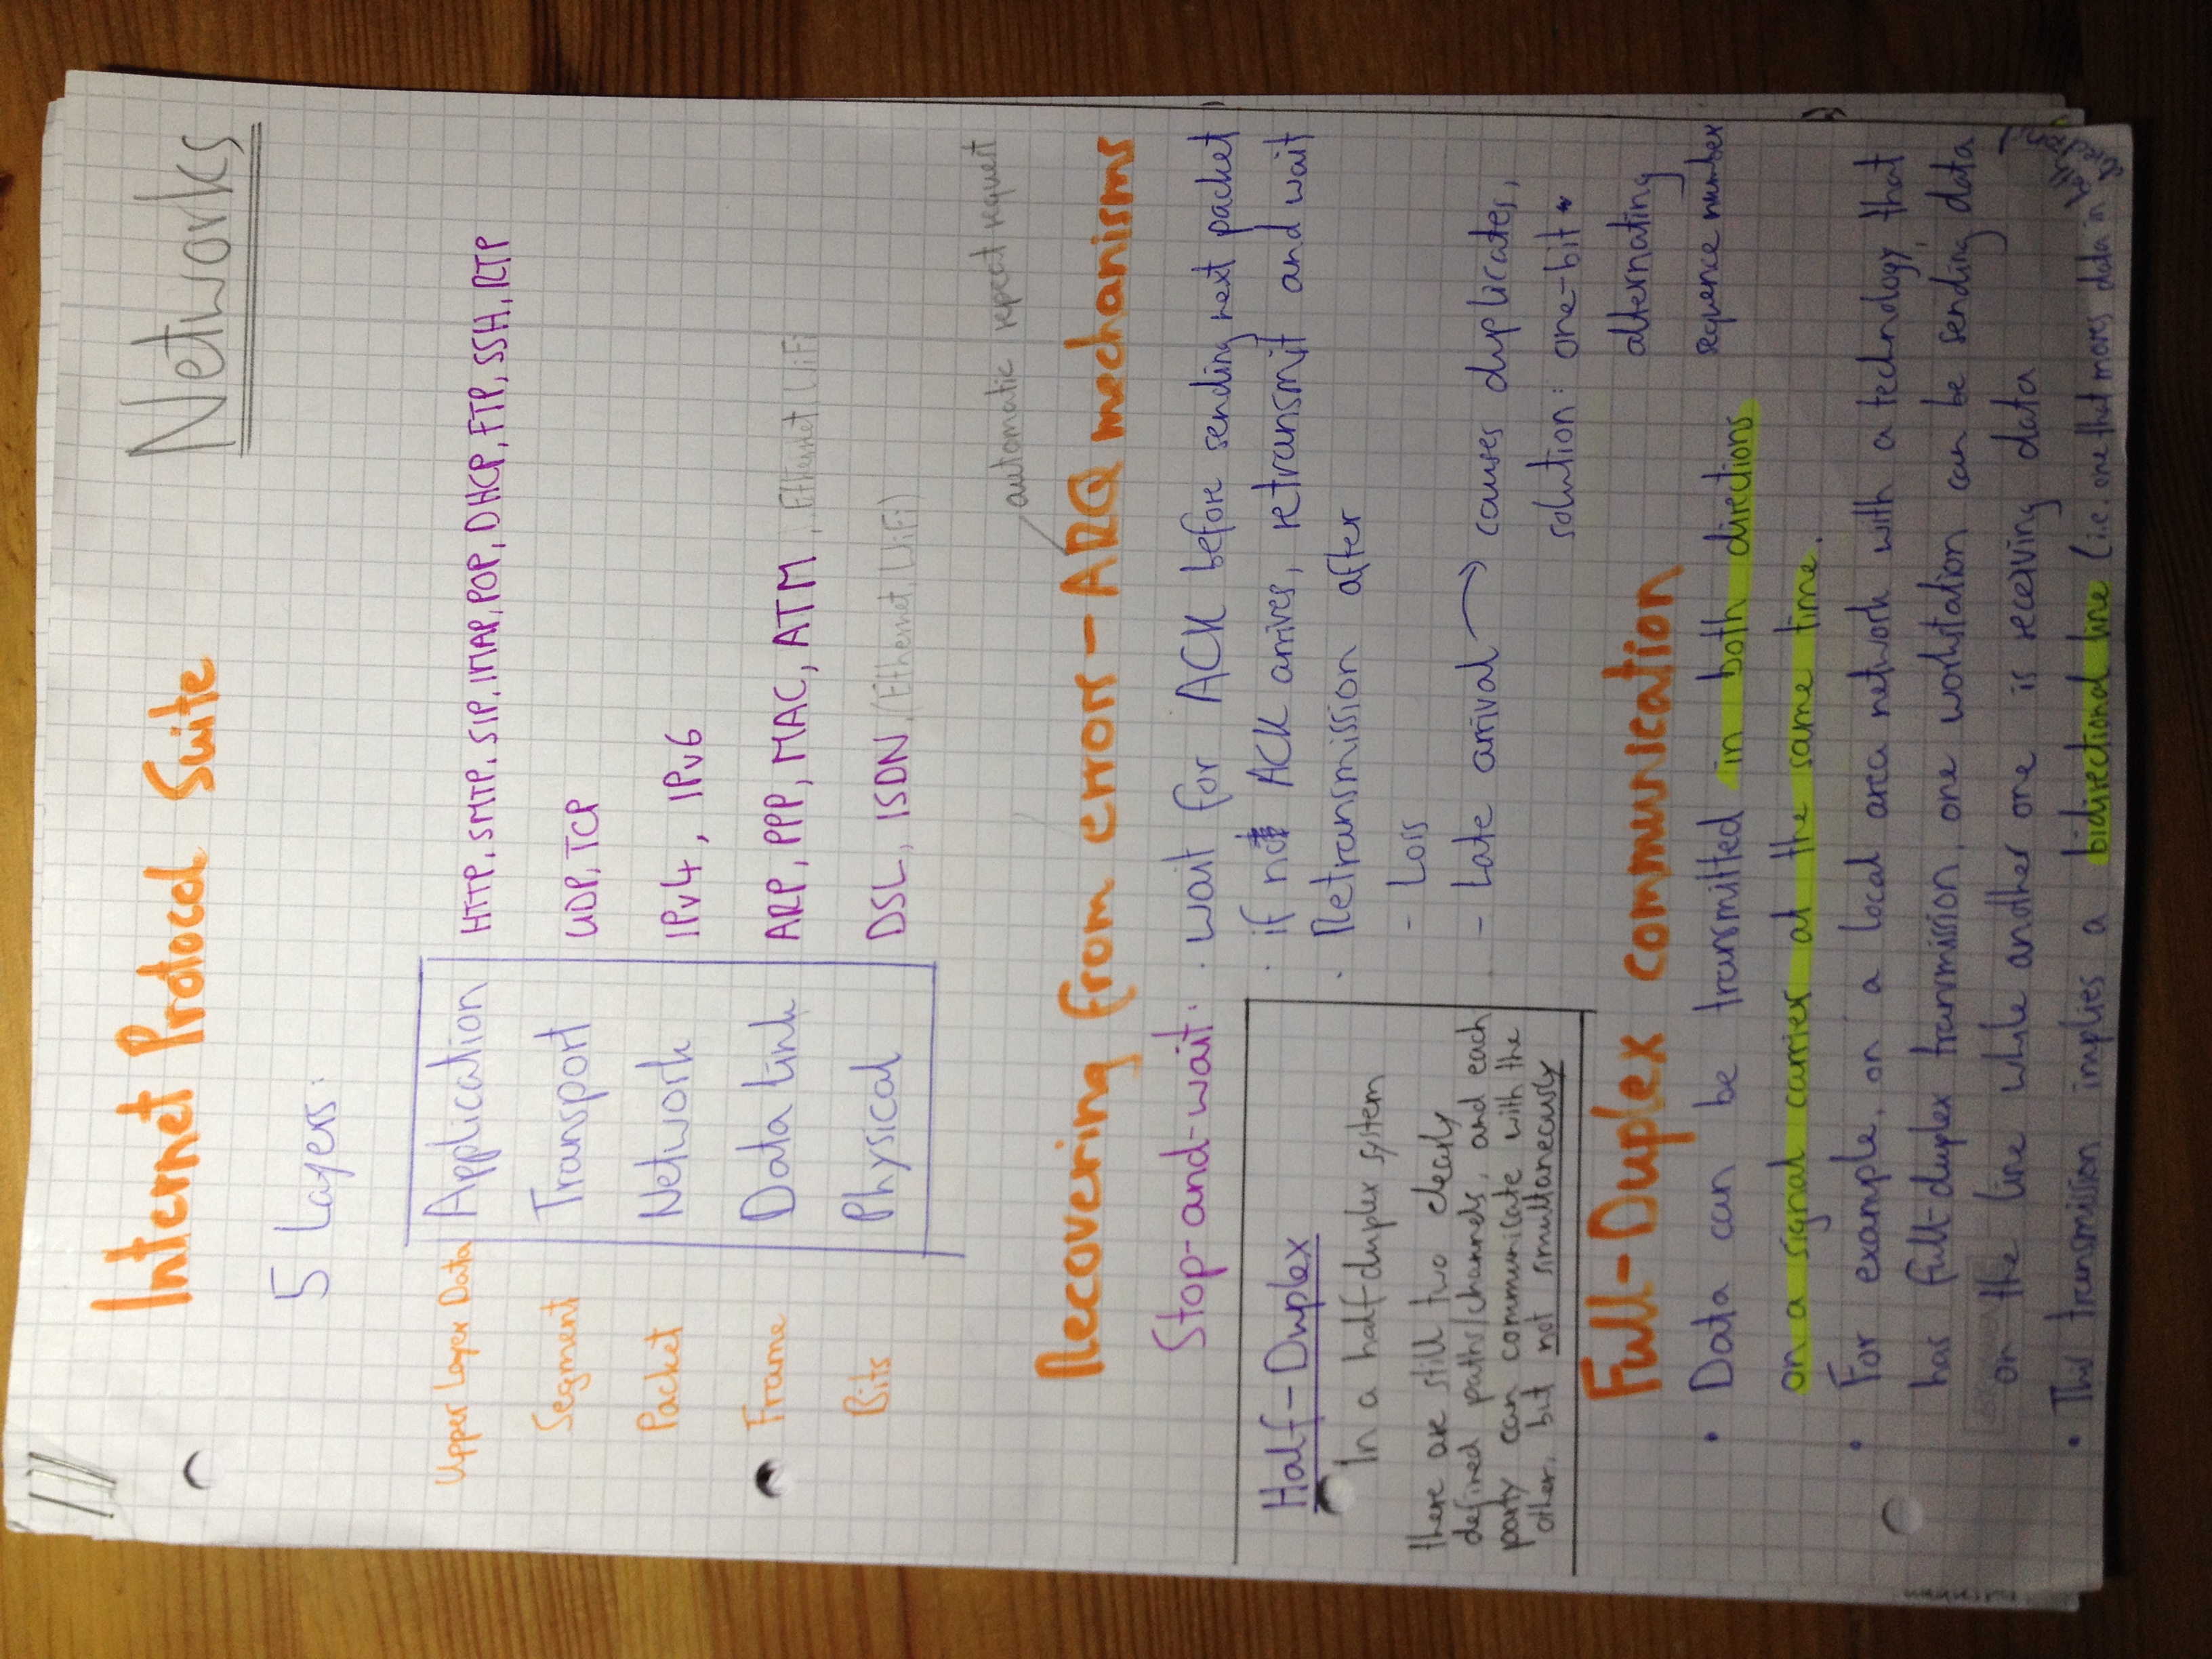 Networks
Internet Protocol Suite
5 Layers:
Upper Layer Data Application HTTP, SMTP, SIP, IMAP, POP, DHCP, FTP, SSH, RTP
Segment Transport UDP, TCP
Packet Network IPv4, IPv6
Frame Data link ARP, PPP, MAC, ATM, Ethernet, WiFi
Bits Physical DSL, ISDN, (Ethernet, WiFi)
automatic repeat request
Recovering from errors - ARQ mechanisms
Stop-and-wait: · wait for ACK before sending next packet
· if no ACK arrives, retransmit and wait
· Retransmission after
- Loss
- Late arrival → causes duplicates,
solution: one-bit
alternating
sequence number
Half-Duplex
In a half-duplex system
there are still two clearly
defined paths/channels, and each
party can communicate with the
other, but not simultaneously
Full-Duplex communication
• Data can be transmitted in both directions
on a signal carrier at the same time.
• For example, on a local area network with a technology that
has full-duplex transmission, one workstation can be sending data
on the line while another one is receiving data
• This transmission implies a bidirectional line (i.e. one that moves data in
both
directions)